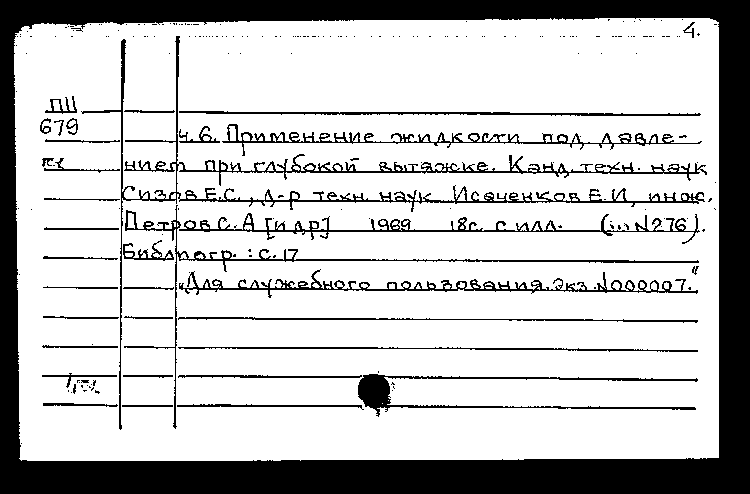 4.
ПII
679 ч.6. Применение жидкости под давле-
нием при глубокой вытяжке. Канд. техн. наук
Сизов Е.С., д-р техн. наук Исаченков Е.И, инж.
Петров С.А [и др] 1969 18с. с илл. (N276).
Библиогр. : с. 17
„Для служебного пользования. Экз. N000007."